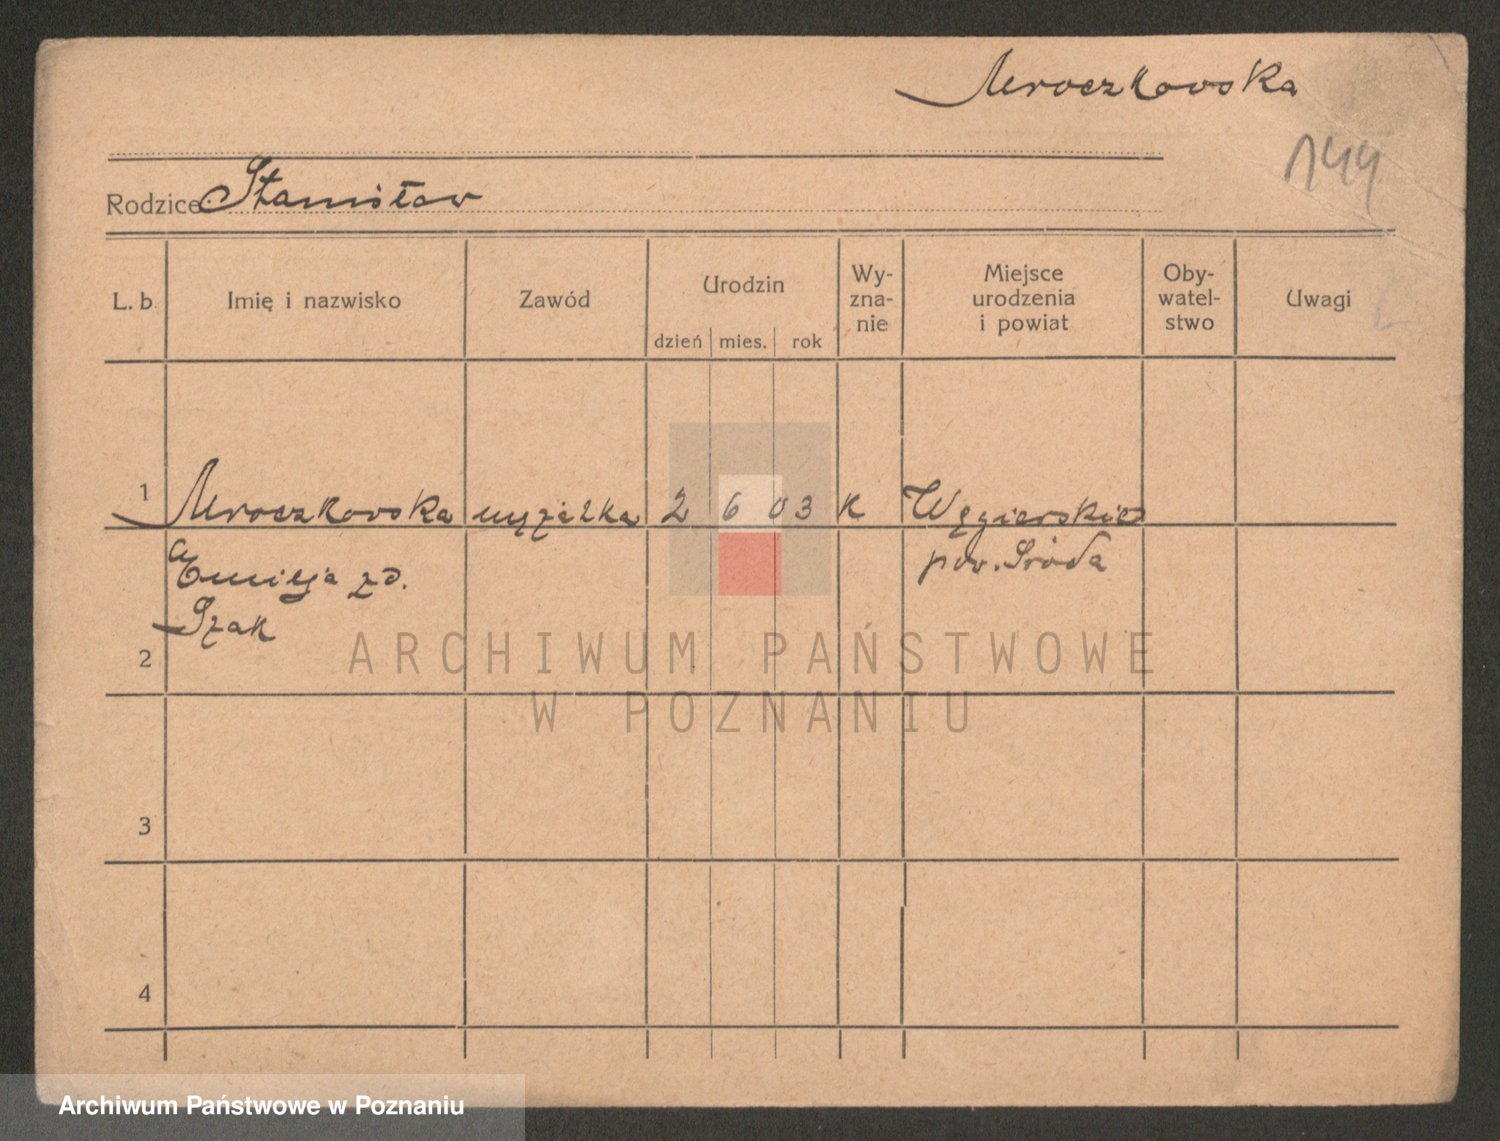 Mroczkowska
144
Rodzice: Stanisław
L. b.
Imię i nazwisko
Zawód
Urodzin
dzień mies. rok
Wy-
zna-
nie
Miejsce
urodzenia
i powiat
Oby-
watel-
stwo
Uwagi
1 Mroczkowska 2 6 03 K Węgierskie
Emilja zd. pow. Środa
Szak
2
3
4
ARCHIWUM PAŃSTWOWE
W POZNANIU
Archiwum Państwowe w Poznaniu